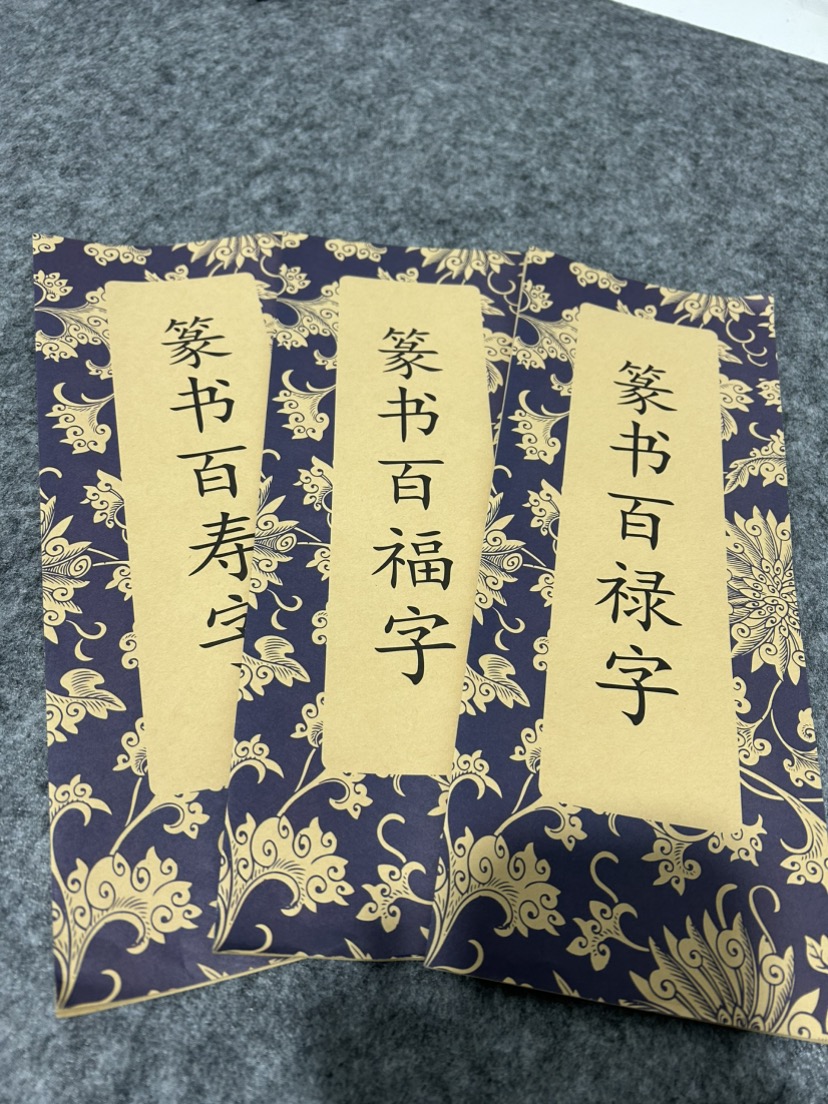 篆书百寿字
篆书百福字
篆书百禄字